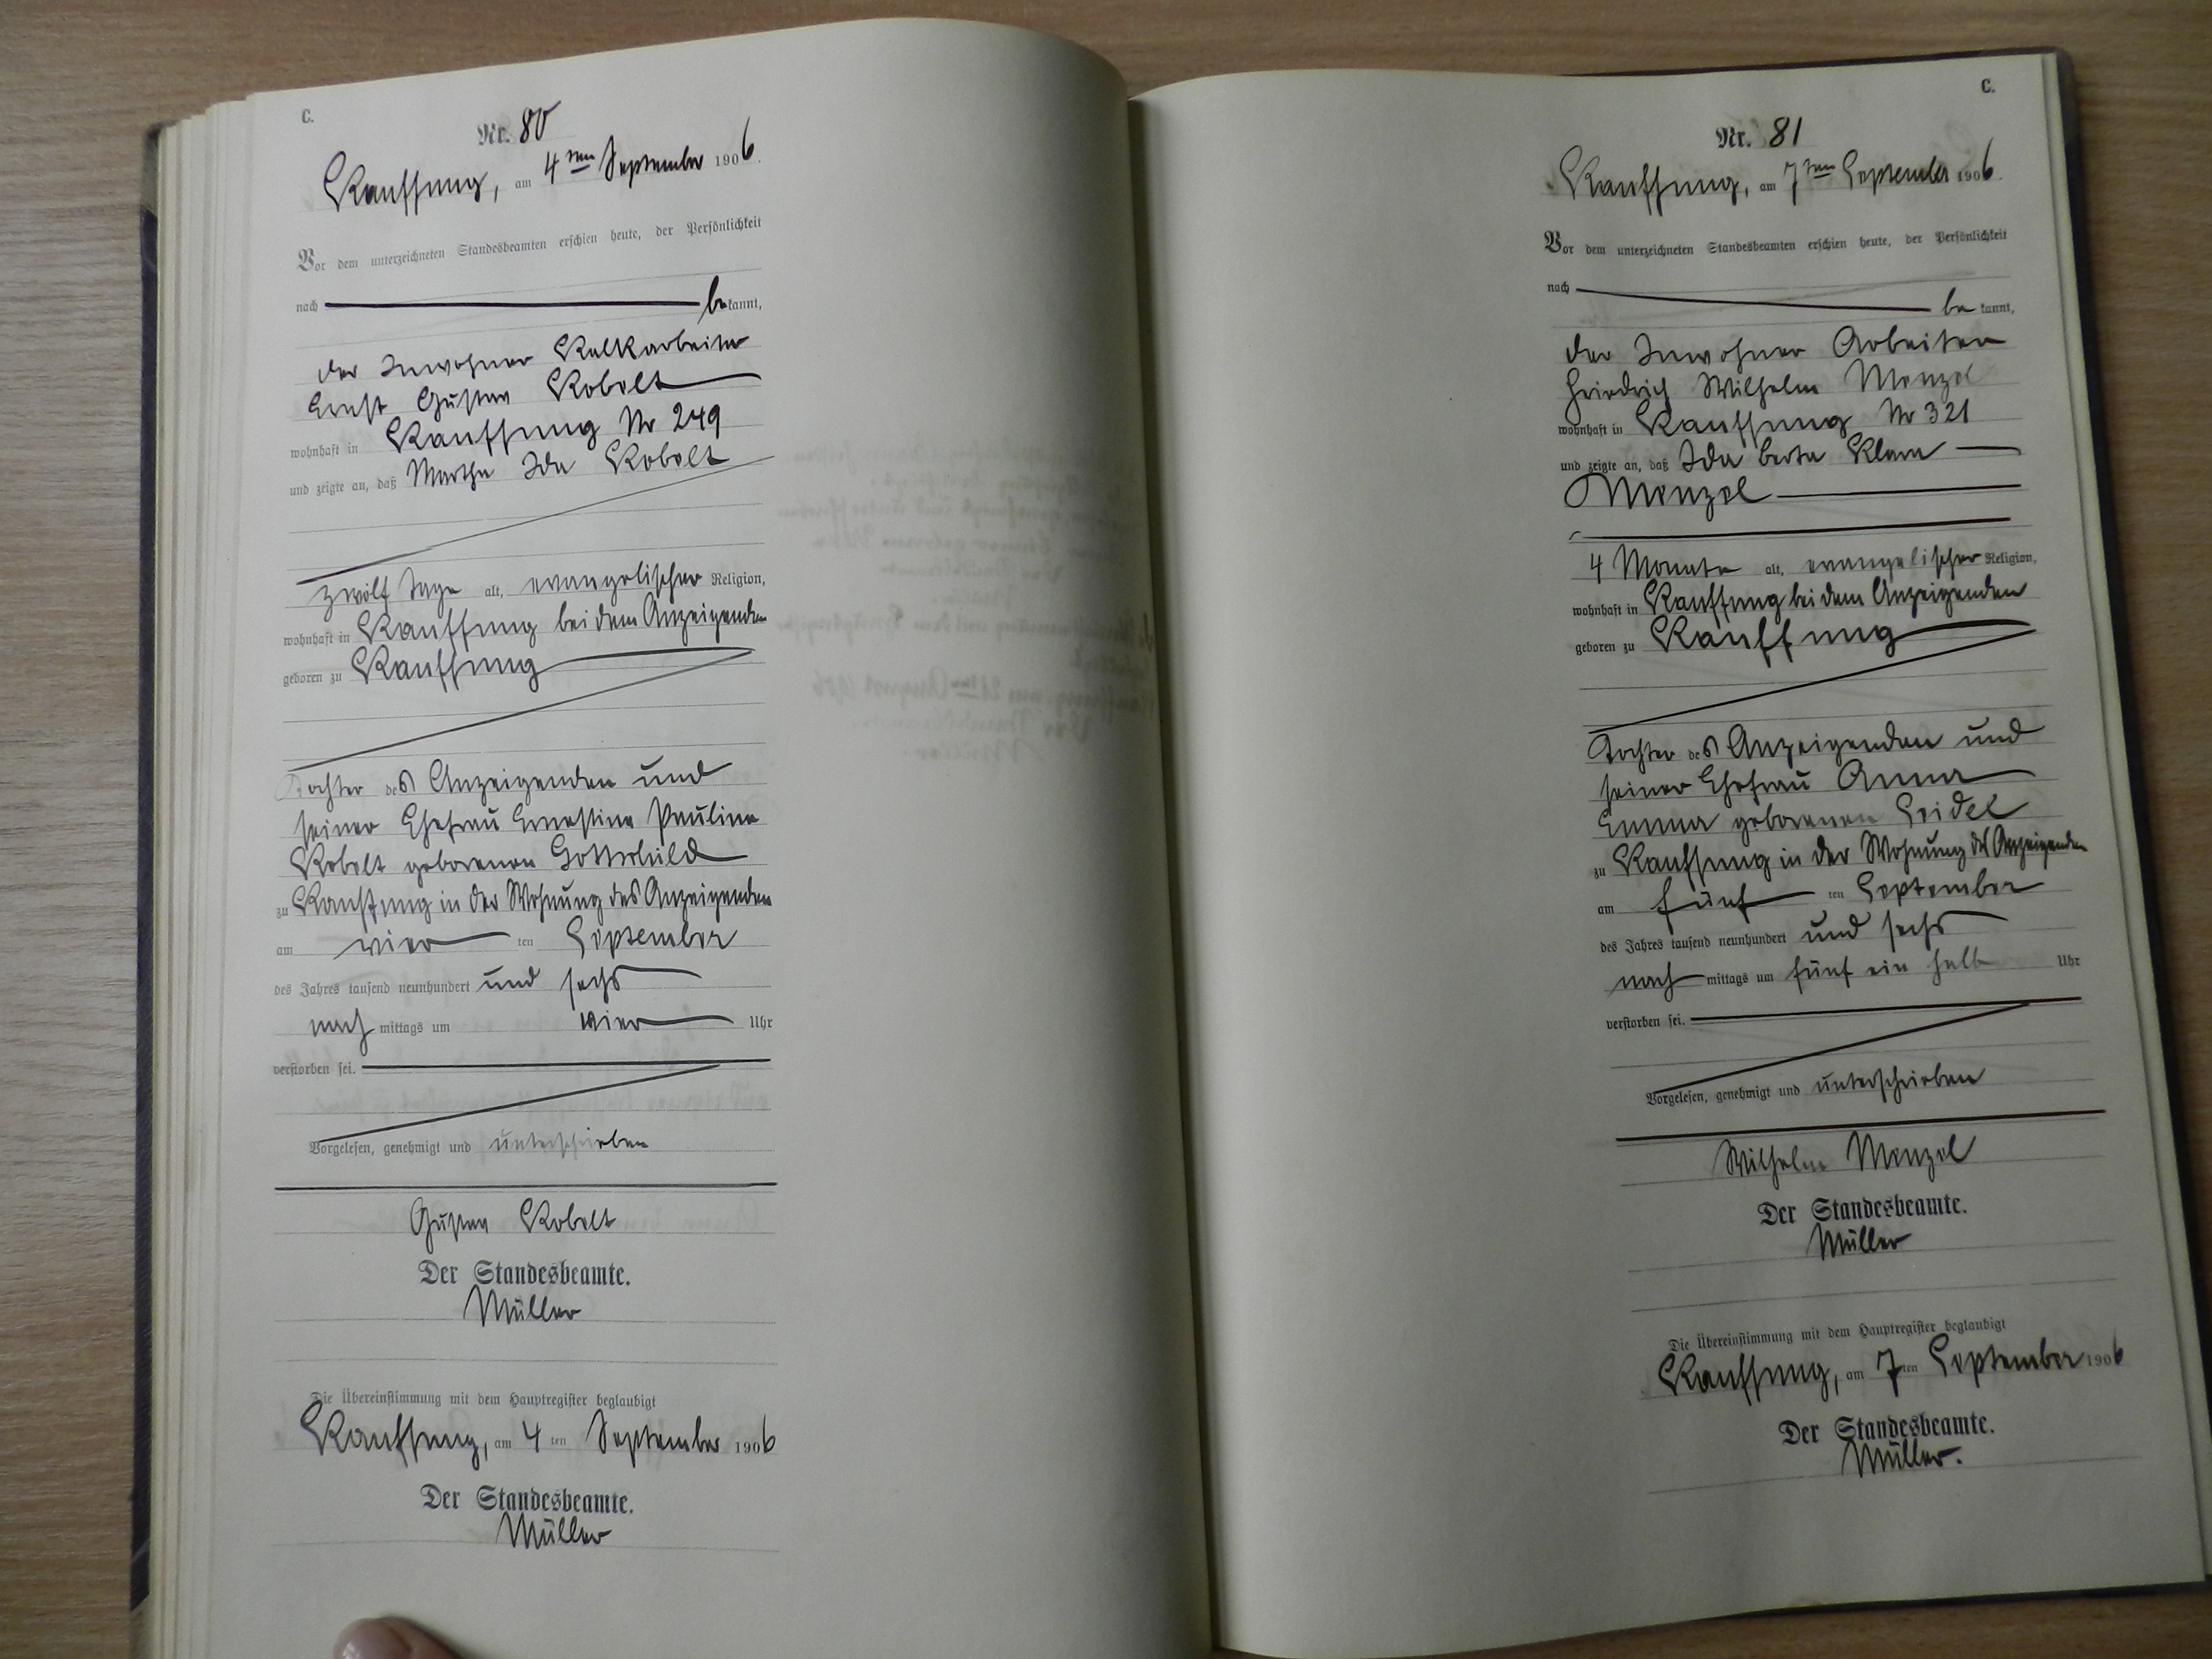 C.
Nr. 80
Kauffung, am 4ten September 1906.
Vor dem unterzeichneten Standesbeamten erschien heute, der Persönlichkeit
nach be kannt,
der Inwohner Kalkarbeiter
Ernst Gustav Kobelt
wohnhaft in Kauffung Nr 249
und zeigte an, daß Martha Ida Kobelt
zwölf Tage alt, evangelischer Religion,
wohnhaft in Kauffung bei dem Anzeigenden
geboren zu Kauffung
Tochter des Anzeigenden und
seiner Ehefrau Ernestine Pauline
Kobelt geborenen Gottschild
zu Kauffung in der Wohnung des Anzeigenden
am vier ten September
des Jahres tausend neunhundert und sechs
nach mittags um vier Uhr
verstorben sei.
Vorgelesen, genehmigt und unterschrieben
Gustav Kobelt
Der Standesbeamte.
Müller
Die Übereinstimmung mit dem Hauptregister beglaubigt
Kauffung, am 4 ten September 1906
Der Standesbeamte.
Müller
C.
Nr. 81
Kauffung, am 7ten September 1906.
Vor dem unterzeichneten Standesbeamten erschien heute, der Persönlichkeit
nach be kannt,
der Inwohner Arbeiter
Friedrich Wilhelm Menzel
wohnhaft in Kauffung Nr 321
und zeigte an, daß Ida Berta Klara
Menzel
4 Monate alt, evangelischer Religion,
wohnhaft in Kauffung bei dem Anzeigenden
geboren zu Kauffung
Tochter des Anzeigenden und
seiner Ehefrau Anna
Emma geborenen Seidel
zu Kauffung in der Wohnung des Anzeigenden
am fünf ten September
des Jahres tausend neunhundert und sechs
nach mittags um fünf ein halb Uhr
verstorben sei.
Vorgelesen, genehmigt und unterschrieben
Wilhelm Menzel
Der Standesbeamte.
Müller
Die Übereinstimmung mit dem Hauptregister beglaubigt
Kauffung, am 7 ten September 1906
Der Standesbeamte.
Müller.